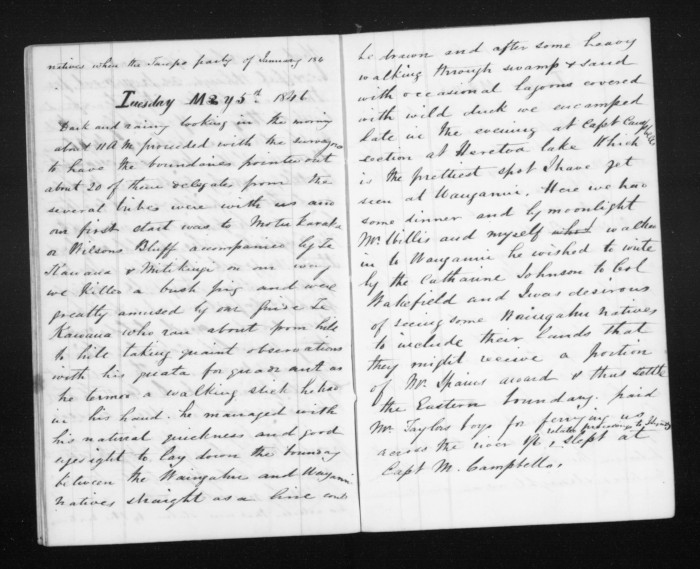 natives when the Taupo party of January 184
Tuesday May 5th 1846
Dark and rainy looking in the morning
about 11 A M proceeded with the surveyors
to have the boundaries pointed out
about 20 of those delegates from the
several tribes were with us and
our first start was to Motu Karaka
or Wilsons Bluff accompanied by Te
Kawana & Mete Kingi on our way
we killed a bush pig and were
greatly amused by our guide Te
Kawana who ran about from hill
to hill taking quaint observations
with his as
he termed a walking stick he had
in his hand. he managed with
his natural quickness and good
eyesight to lay down the boundary
between the Waingahu and Wanganui
natives straight as a line could
be drawn and after some heavy
walking through swamp & sand
with occasional lagoons covered
with wild duck we encamped
late in the evening at Capt Campbells
section at Heretoa lake which
is the prettiest spot I have yet
seen at Wanganui. Here we had
some dinner and by moonlight
Mr Wills and myself walked
in to Wanganui he wished to write
by the Catharine Johnson to Col
Wakefield and I was desirous
of seeing some Waingahu natives
to include their lands that
they might receive a portion
of Mr Spains award & thus settle
the Eastern boundary. paid
Mr Taylors boys for ferrying us
across the river 1/- & slept at
Capt M. Campbells.